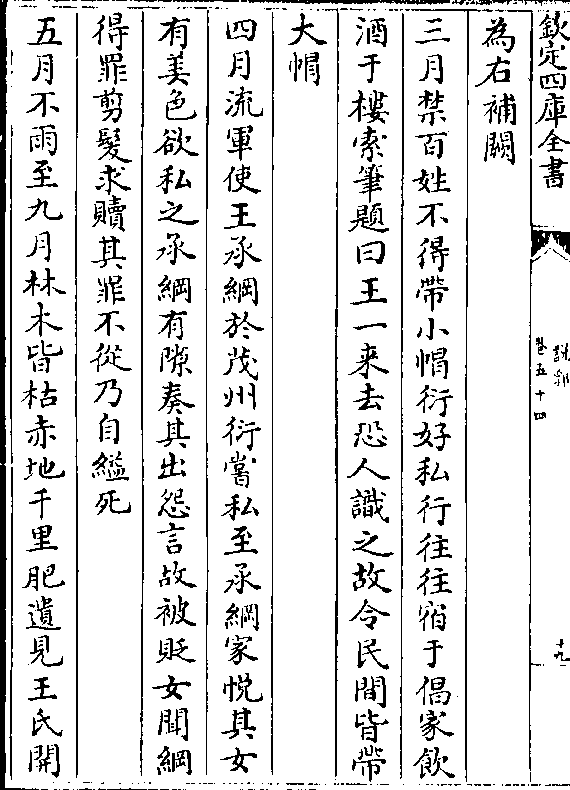 欽定四庫全書
說郛
卷五十四
十九
為右補闕
三月禁百姓不得帶小帽衍好私行往往宿于倡家飲
酒于樓索筆題曰王一来去恐人識之故令民間皆帶
大帽
四月流軍使王承綱於茂州衍嘗私至承綱家悅其女
有美色欲私之承綱有隙奏其出怨言故被貶女聞綱
得罪剪髮求贖其罪不從乃自縊死
五月不雨至九月林木皆枯赤地千里肥遺見王氏開